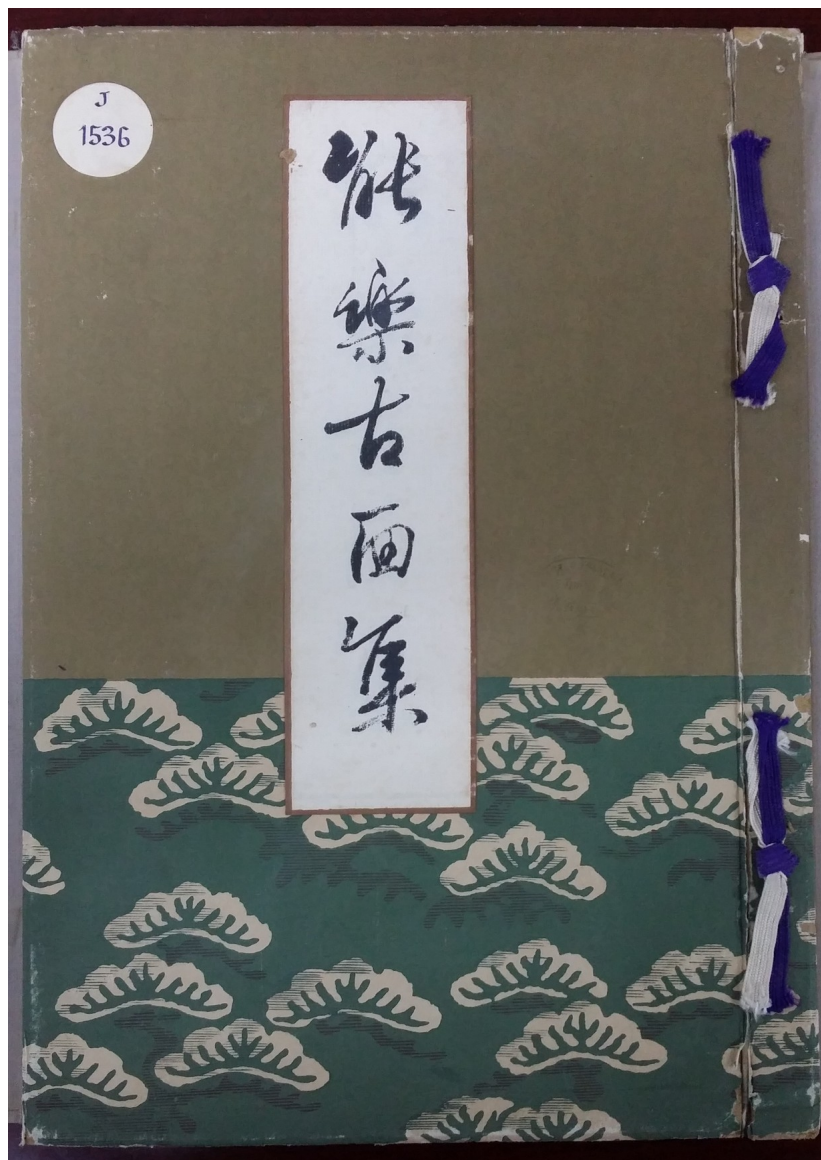 J
1536
能樂古面集